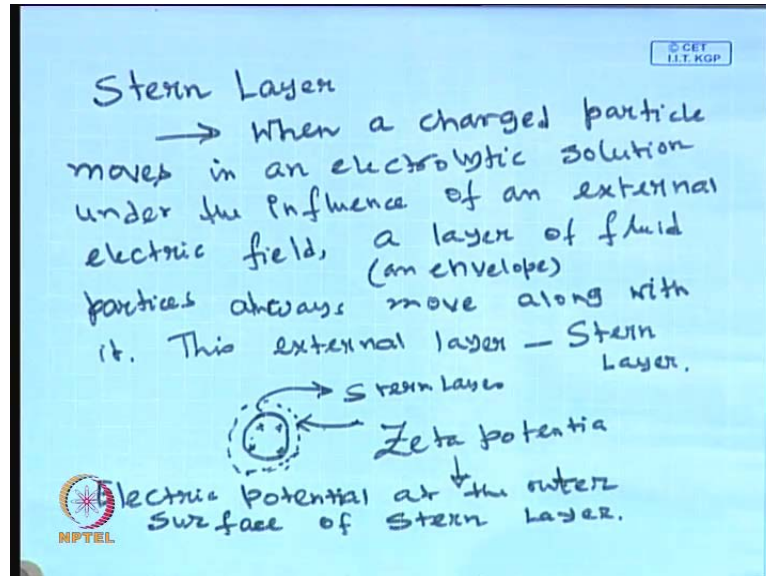 © CET
I.I.T. KGP
Stern Layer
→ When a charged particle
moves in an electrolytic solution
under the influence of an external
electric field, a layer of fluid
(an envelope)
partices always move along with
it. This external layer – Stern
Layer.
Stern Layer
Zeta potentia
Electric potential at the outer
surface of Stern Layer.
NPTEL